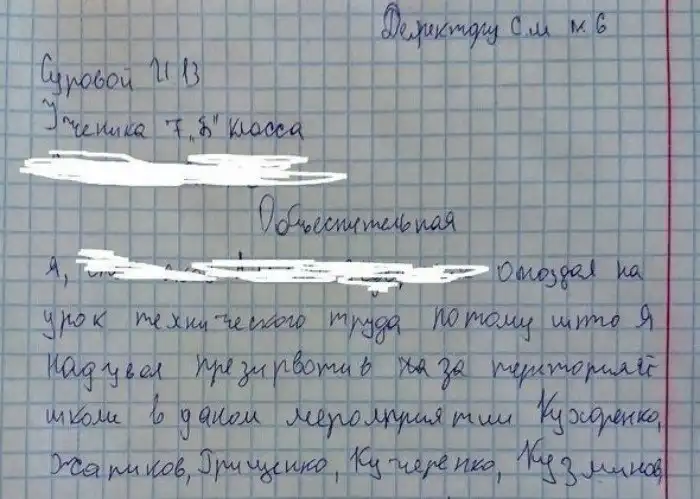 Деректору см N. 6
Суровой И В
Ученика 7 „Б" класса
Обьеснительная
Я, опоздал на
урок технического труда потому што я
надувал презирвотив за территорияй
школи в даном мероприятии Кухоренко,
Жариков, Грищенко, Кучеренко, Кузминов,